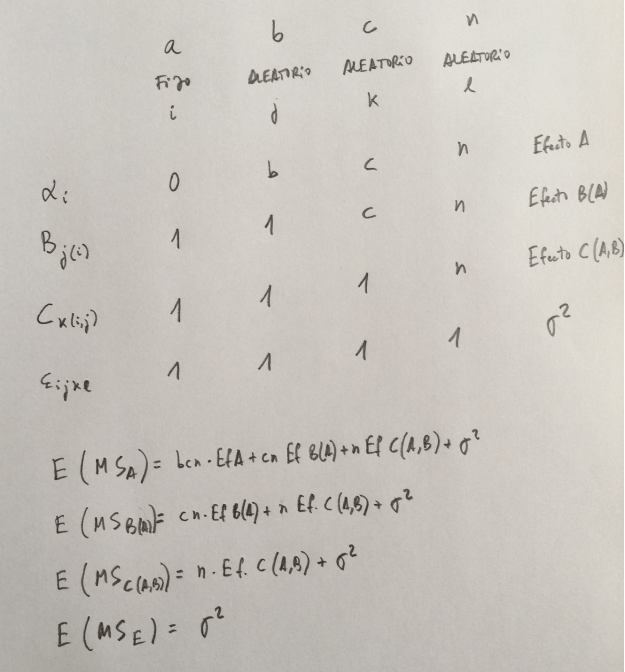 a b c n
Fijo ALEATORIO ALEATORIO ALEATORIO
i j k l
αi 0 b c n Efecto A
Bj(i) 1 1 c n Efecto B(A)
Ck(i,j) 1 1 1 n Efecto C(A,B)
εijkl 1 1 1 1 σ²
E(MSA) = bcn·EfA + cn Ef B(A) + n Ef C(A,B) + σ²
E(MSB(A)) = cn·Ef B(A) + n Ef. C(A,B) + σ²
E(MSC(A,B)) = n·Ef. C(A,B) + σ²
E(MSE) = σ²